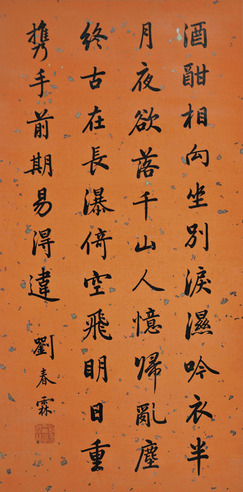 酒酣相向坐別淚濕吟衣半
月夜欲落千山人憶歸亂塵
終古在長瀑倚空飛明日重
攜手前期易得違
劉春霖